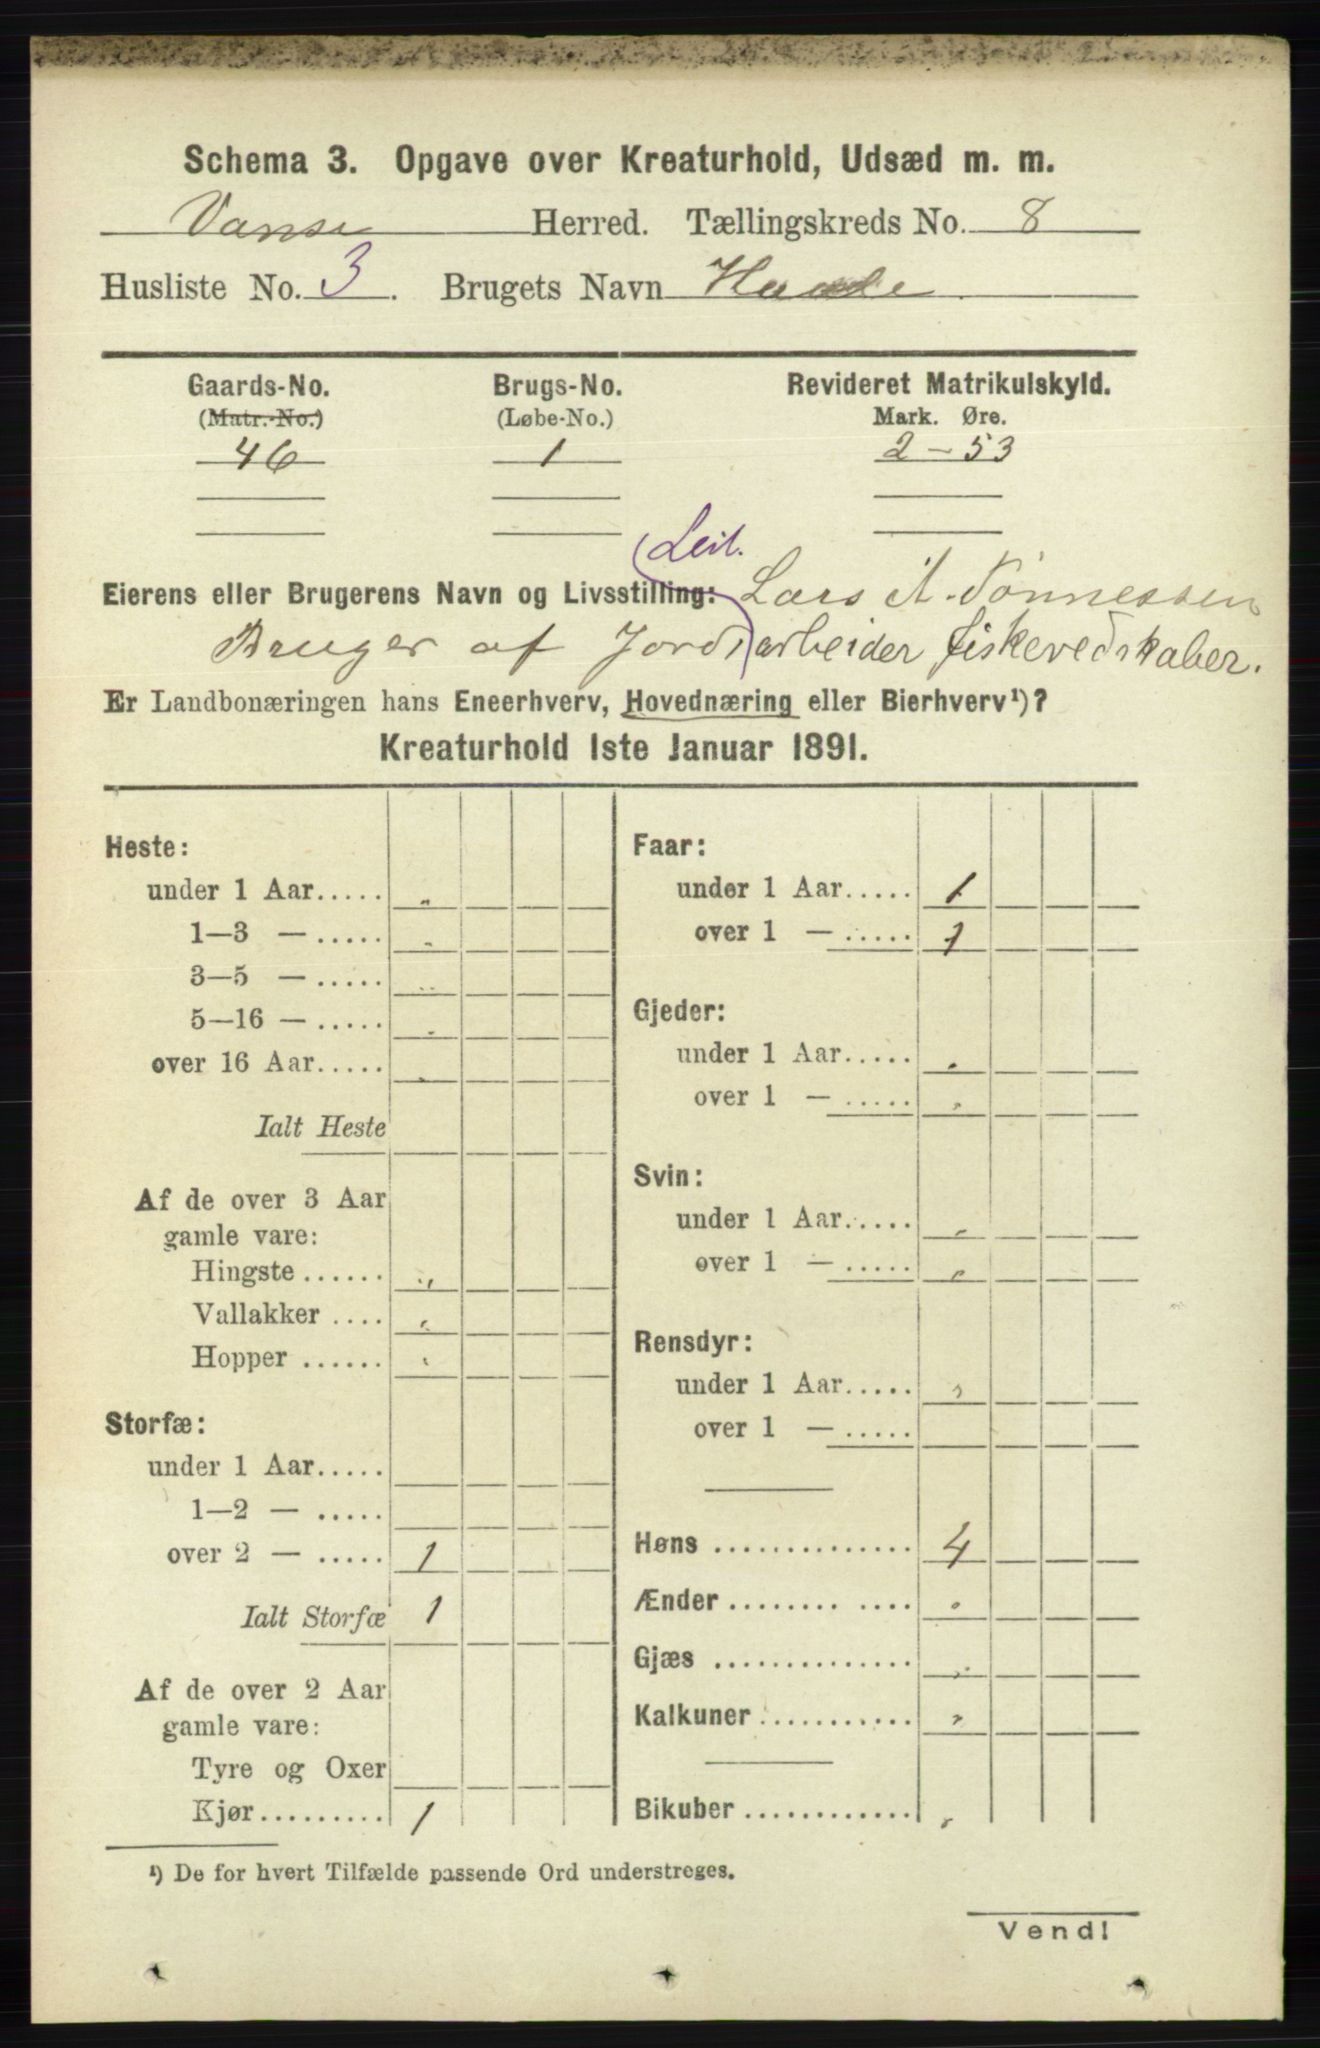 Schema 3. Opgave over Kreaturhold, Udsæd m. m.
Vanse Herred. Tællingskreds No. 8
Husliste No. 3. Brugets Navn
Gaards-No. Brugs-No. Revideret Matrikulskyld.
(Matr.-No.) (Løbe-No.) Mark. Øre.
46 1 2 – 53
Leil.
Eierens eller Brugerens Navn og Livsstilling: Lars A. Tønnessen
Bruger af Jord, arbeider fiskeredskaber.
Er Landbonæringen hans Eneerhverv, Hovednæring eller Bierhverv¹)?
Kreaturhold 1ste Januar 1891.
Heste:
under 1 Aar..... .
1—3 — ..... .
3—5 — ..... ..
5—16 — ..... .
over 16 Aar..... .
Ialt Heste
Af de over 3 Aar
gamle vare:
Hingste ...... .,
Vallakker .... .
Hopper ...... .
Storfæ:
under 1 Aar.....
1—2 — .....
over 2 — ..... 1
Ialt Storfæ 1
Af de over 2 Aar
gamle vare:
Tyre og Oxer
Kjør......... 1
Faar:
under 1 Aar..... 1
over 1 — ..... 1
Gjeder:
under 1 Aar..... .
over 1 — ..... .
Svin:
under 1 Aar..... .
over 1 — ..... .
Rensdyr:
under 1 Aar..... ,
over 1 — .....
Høns .............. 4
Ænder ........ .... .
Gjæs .............. .
Kalkuner ........... ,
Bikuber ............ .
¹) De for hvert Tilfælde passende Ord understreges.
Vend!